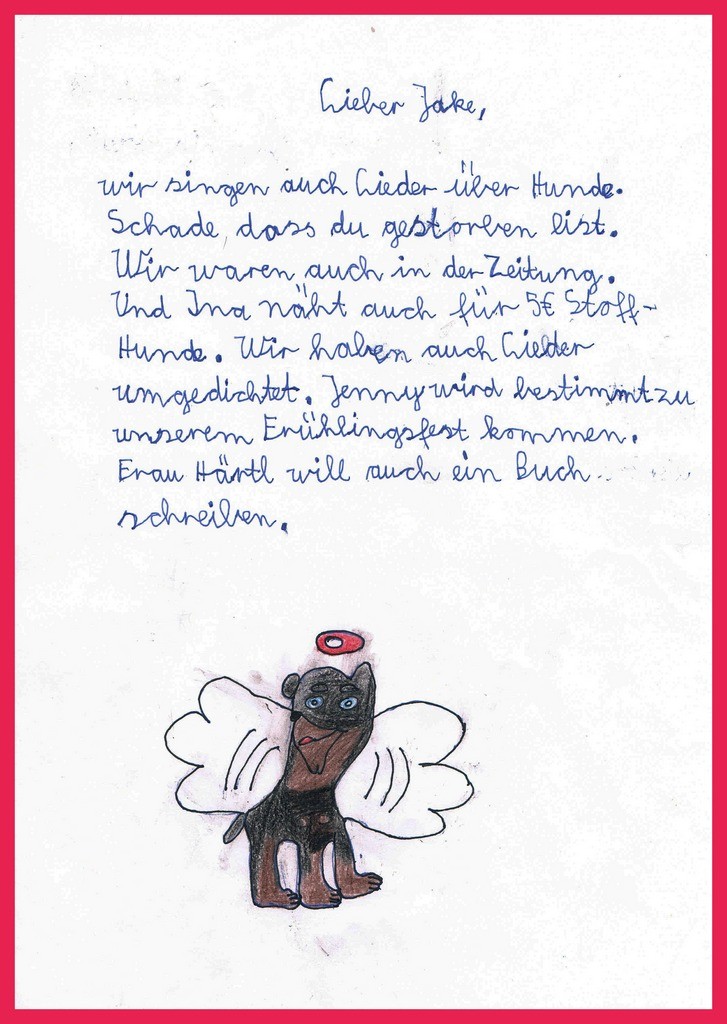 Lieber Jake,
wir singen auch Lieder über Hunde.
Schade, dass du gestorben bist.
Wir waren auch in der Zeitung.
Und Ina näht auch für 5€ Stoff-
Hunde. Wir haben auch Lieder
umgedichtet. Jenny wird bestimmt zu
unserem Frühlingsfest kommen.
Frau Härtl will auch ein Buch
schreiben.